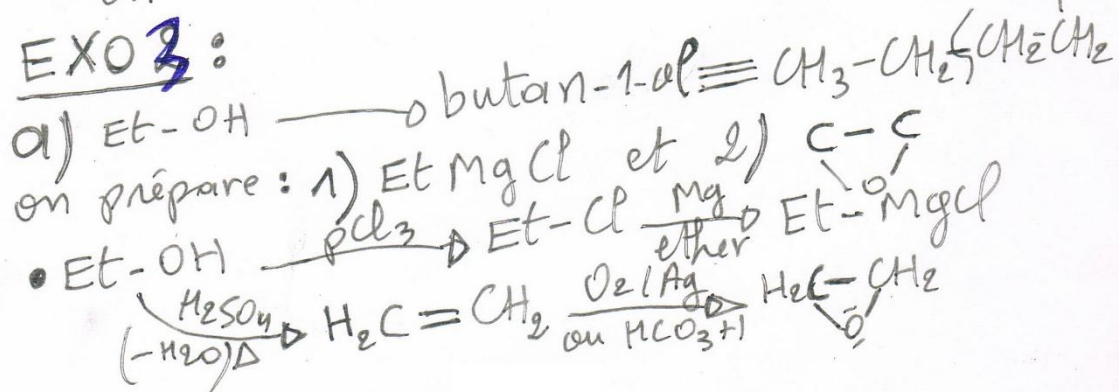 EXO 3 :
a) Et-OH → butan-1-ol ≡ CH3-CH2 CH2-CH2
on prépare : 1) EtMgCl et 2) C-C O
• Et-OH PCl3 → Et-Cl Mg ether → Et-MgCl
H2SO4 (-H2O)Δ → H2C=CH2 O2/Ag ou HCO3H → H2C-CH2 O